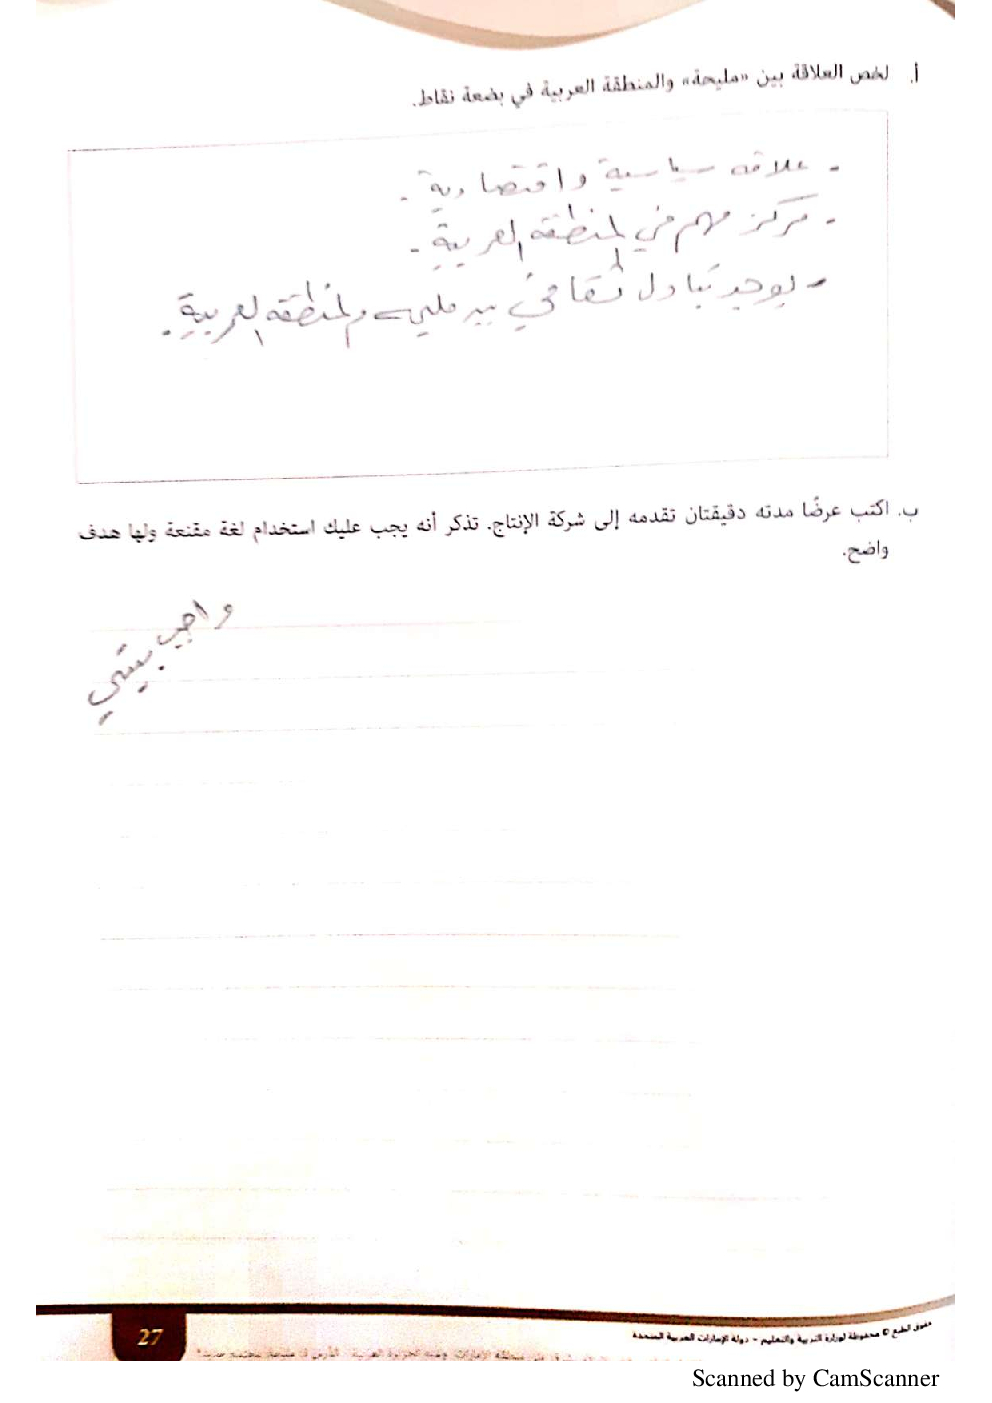 أ. لخص العلاقة بين «مليحة» والمنطقة العربية في بضعة نقاط.
- علاقه سياسية واقتصادية.
- مركز مهم في المنطقه العربية.
- يوجد تبادل ثقافي بين مليحه والمنطقه العربية.
ب. اكتب عرضًا مدته دقيقتان تقدمه إلى شركة الإنتاج. تذكر أنه يجب عليك استخدام لغة مقنعة ولها هدف
واضح.
واجب بيتي
حقوق الطبع © محفوظة لوزارة التربية والتعليم - دولة الإمارات العربية المتحدة
27
Scanned by CamScanner